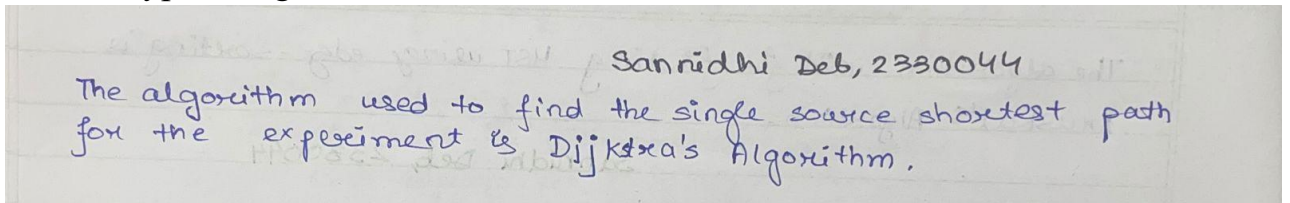 Sannidhi Deb, 2330044
The algorithm used to find the single source shortest path
for the experiment is Dijkstra's Algorithm.